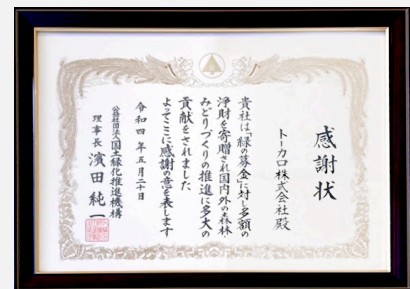 感謝状
トーカロ株式会社殿
貴社は「緑の募金」に対し多額の
浄財を寄贈され国内外の森林・
みどりづくりの推進に多大の
貢献をされました
よってここに感謝の意を表します
令和四年五月二十日
公益社団法人国土緑化推進機構
理事長 濱田純一